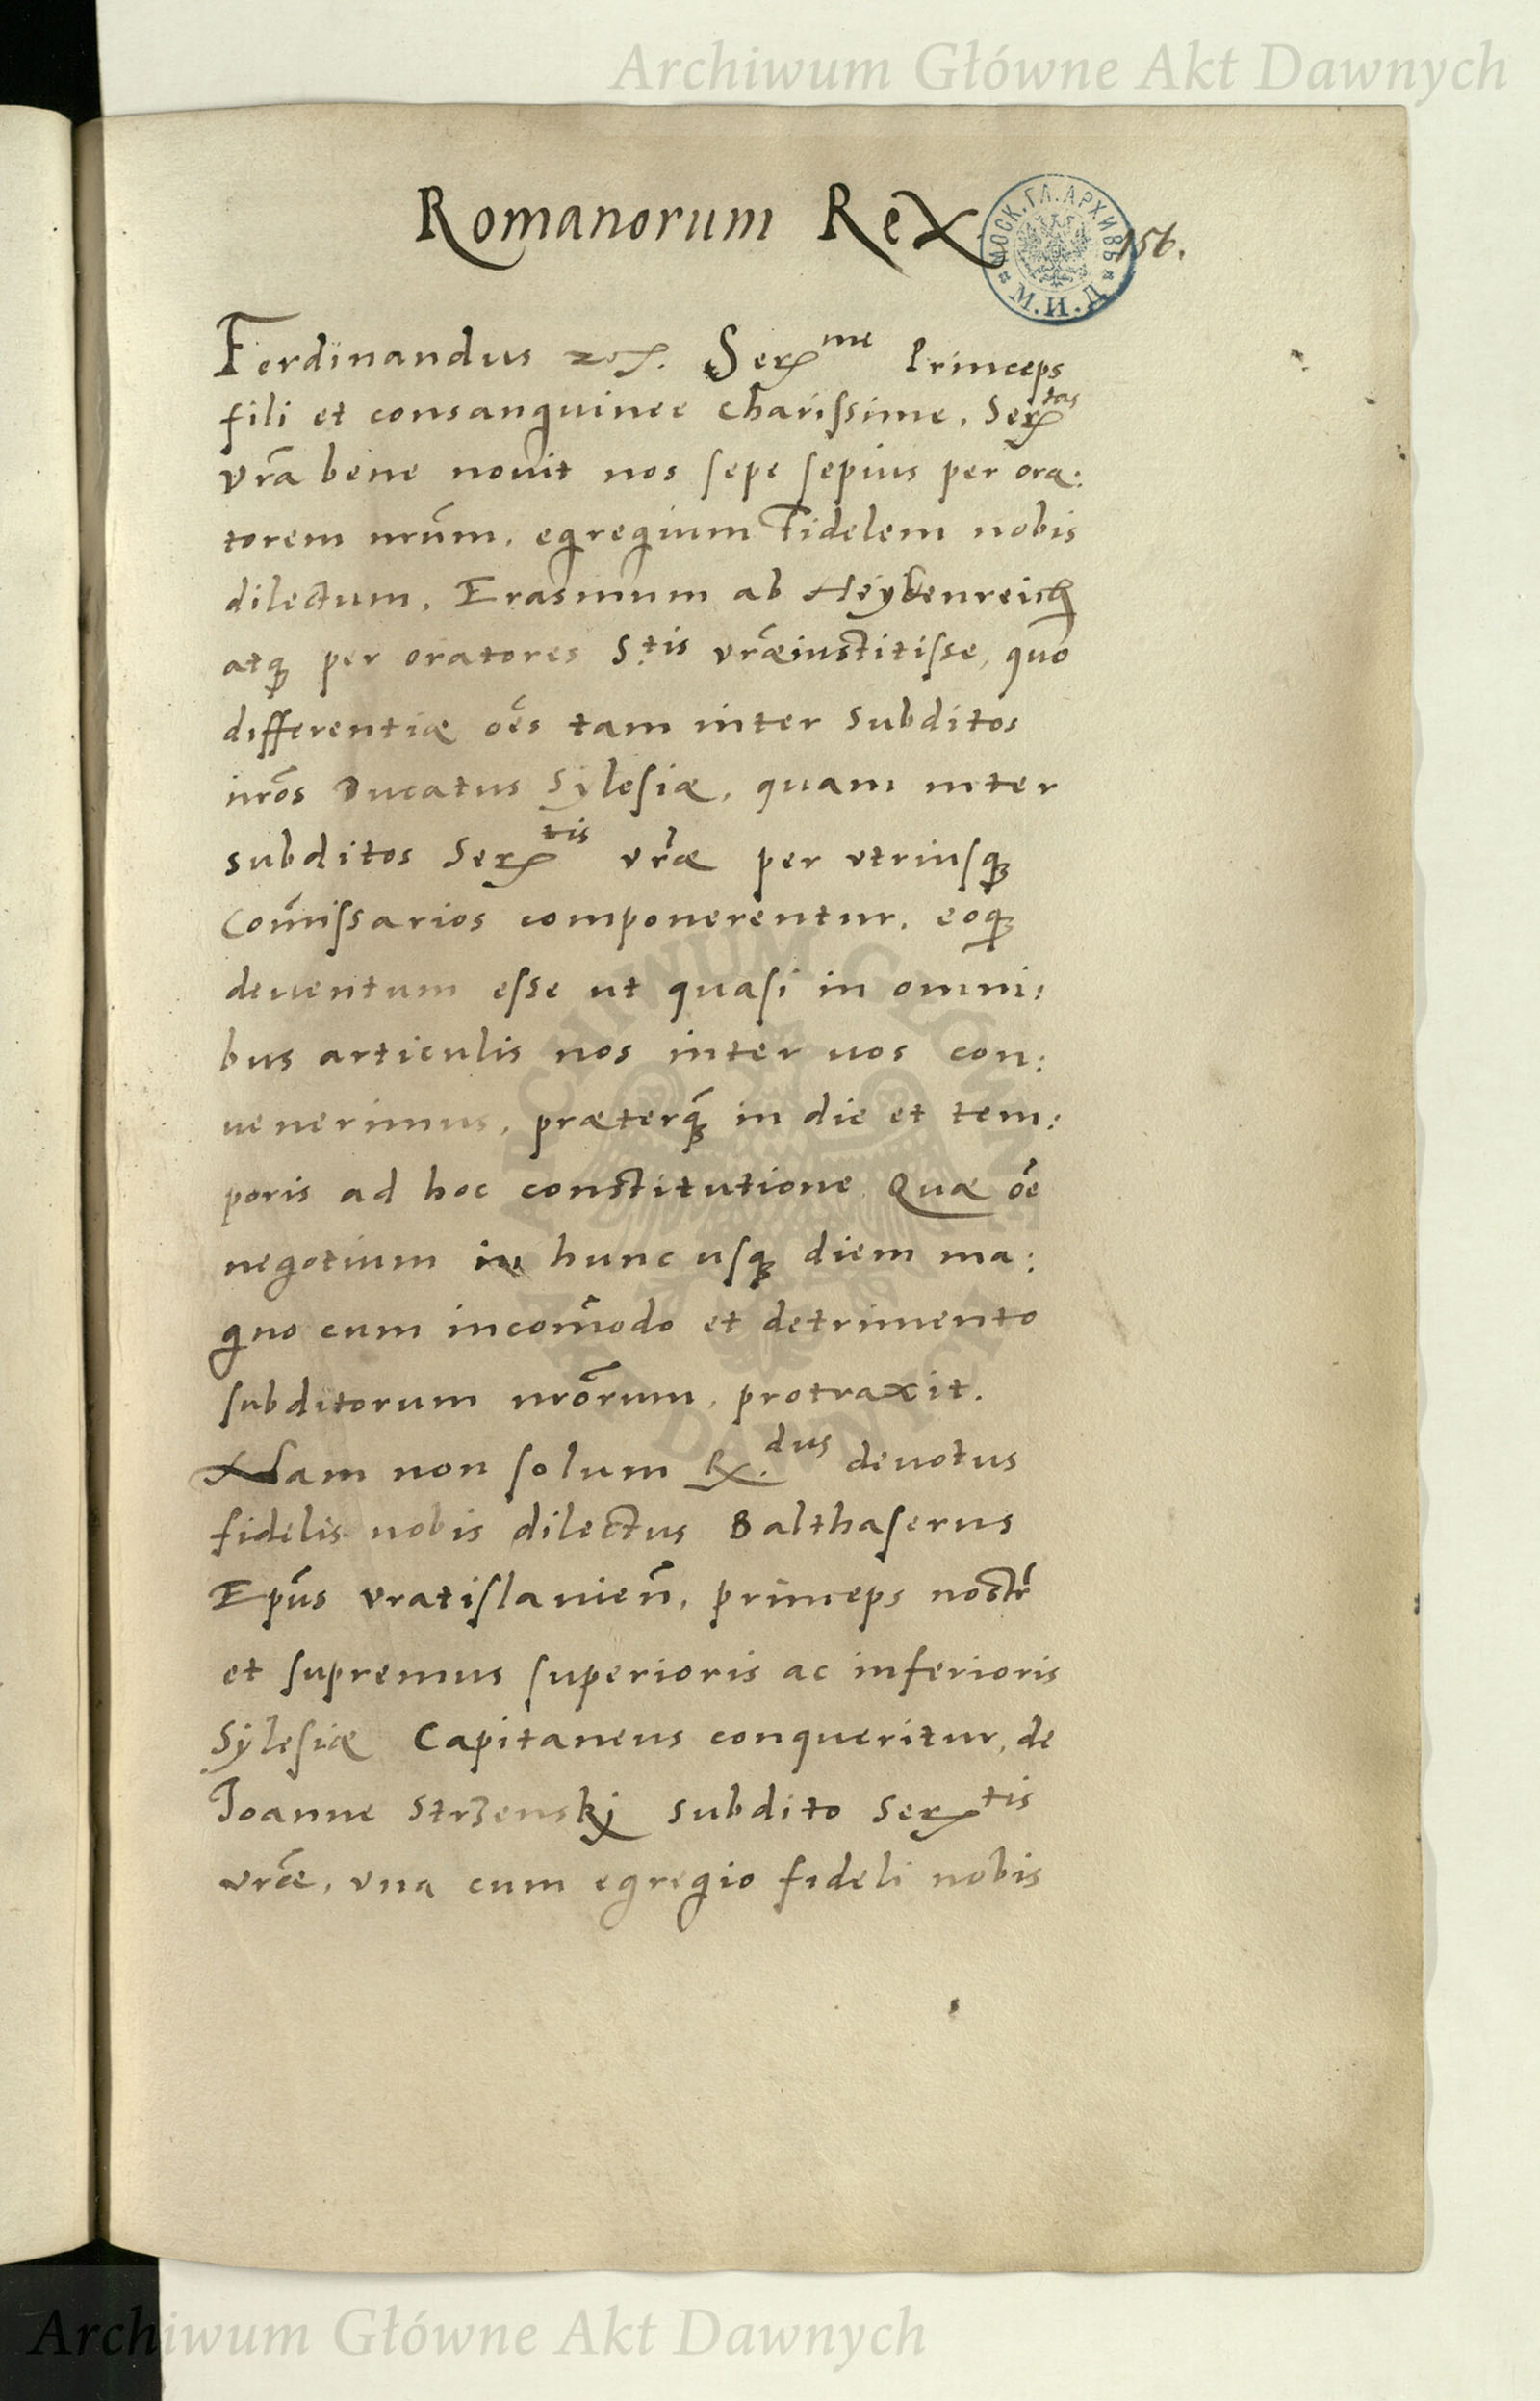 Archiwum Główne Akt Dawnych
Romanorum Rex
МОСК. ГЛ. АРХИВЪ
М. И. Д.
156.
Ferdinandus Serme Princeps
fili et consanguinee charissime, Sertas
vrā bene nouit nos sepe sepius per ora:
torem nrūm, egregium Fidelem nobis
dilectum, Erasmum ab Heydenreich
atq per oratores S.tis vrāe institisse, quo
differentiæ oēs tam inter Subditos
nrōs Ducatus Sylesiæ, quam inter
subditos Sertis vrāe per vtriusq
Com̄issarios componerentur, eoq
deuentum esse ut quasi in omni:
bus articulis nos inter uos con:
uenerimus, præterq̄ in die et tem:
poris ad hoc constitutione. Quæ oē
negotium in hunc usq diem ma:
gno cum incom̄odo et detrimento
subditorum nrōrum, protraxit.
Nam non solum R.dus deuotus
fidelis nobis dilectus Balthaserus
Epūs vratislauien̄, princeps nostr̄
et supremus superioris ac inferioris
Sylesiæ Capitaneus conqueritur, de
Joanne Strzenskj subdito Sertis
vrāe, vna cum egregio fideli nobis
ARCHIWUM GŁÓWNE
AKT DAWNYCH
Archiwum Główne Akt Dawnych